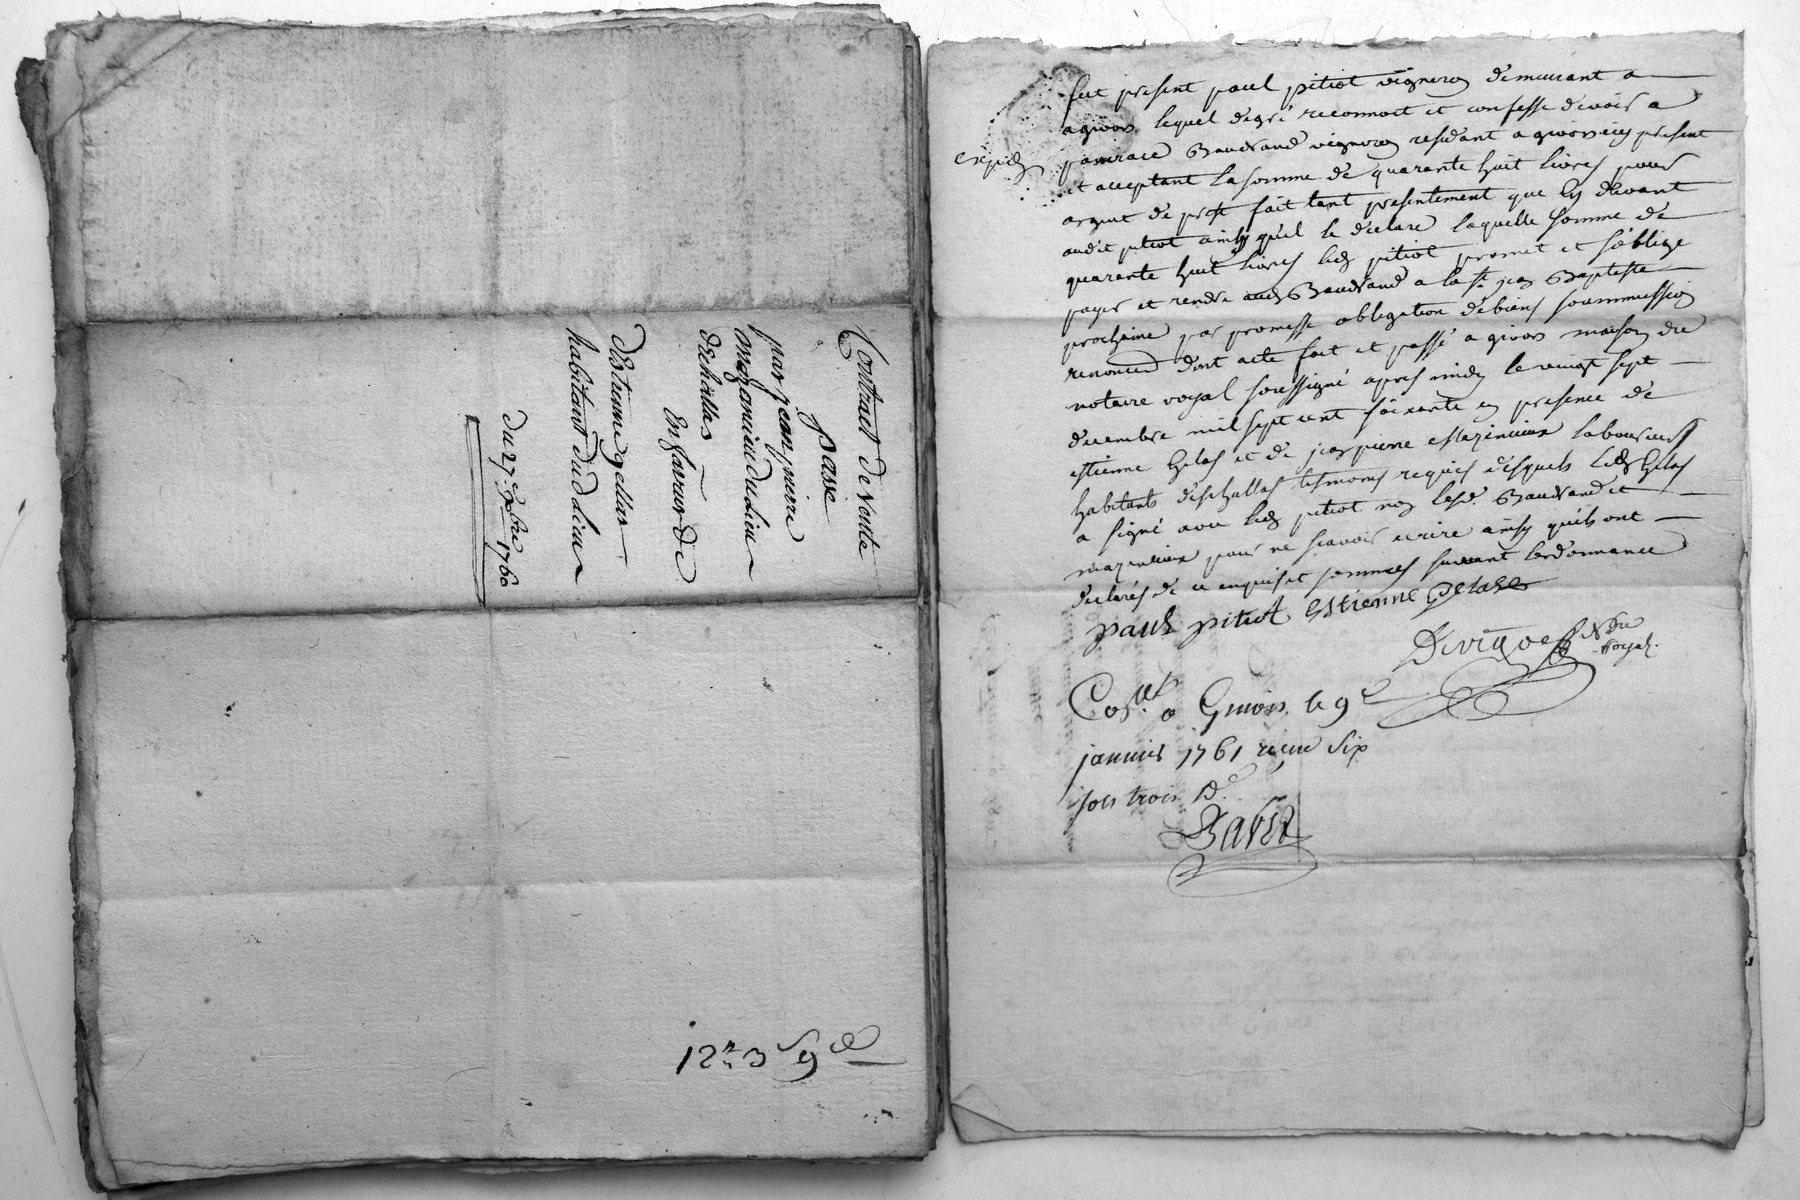 Contract de Vente
passé
par jean pierre
mazanieu du lieu
dechallas
En faveur de
d'Estienne gellas
habitant dud. lieu
du 27.e xbre 1760
12# 3s 9d
fut present paul pitiot vigneron demeurant a
a givors lequel de gré reconnoit et confesse devoir a
expédié
pancrace Baudrand vigneron residant a givors icy present
et acceptant la somme de quarante huit livres pour
argent de prest fait tant presentement que cy devant
audit pitiot ainsy qu'il le declare laquelle somme de
quarante huit livres led. pitiot promet et s'oblige
payer et rendre aud. Baudrand a la St. jean Baptiste
prochaine par promesse obligation de biens soummission
renoncēon dont acte fait et passé a givors maison du
notaire royal soussigné apres midy le vingt sept
decembre mil sept cent soixante en presence de
estienne Gelas et de jean pierre mazenieux laboureurs
habitants d'eschallas temoins requis desquels led. Gelas
a signé avec led. pitiot non lesd. Baudrand et
mazenieux pour ne scavoir ecrire ainsy qu'ils ont
declarés de ce enquis et sommés suivant l'ordonnance
paul pitiot Estienne Gelas
Devignes Nre
Royal.
Con.lé a Givors le 9e
janvier 1761 recu six
sols trois d.